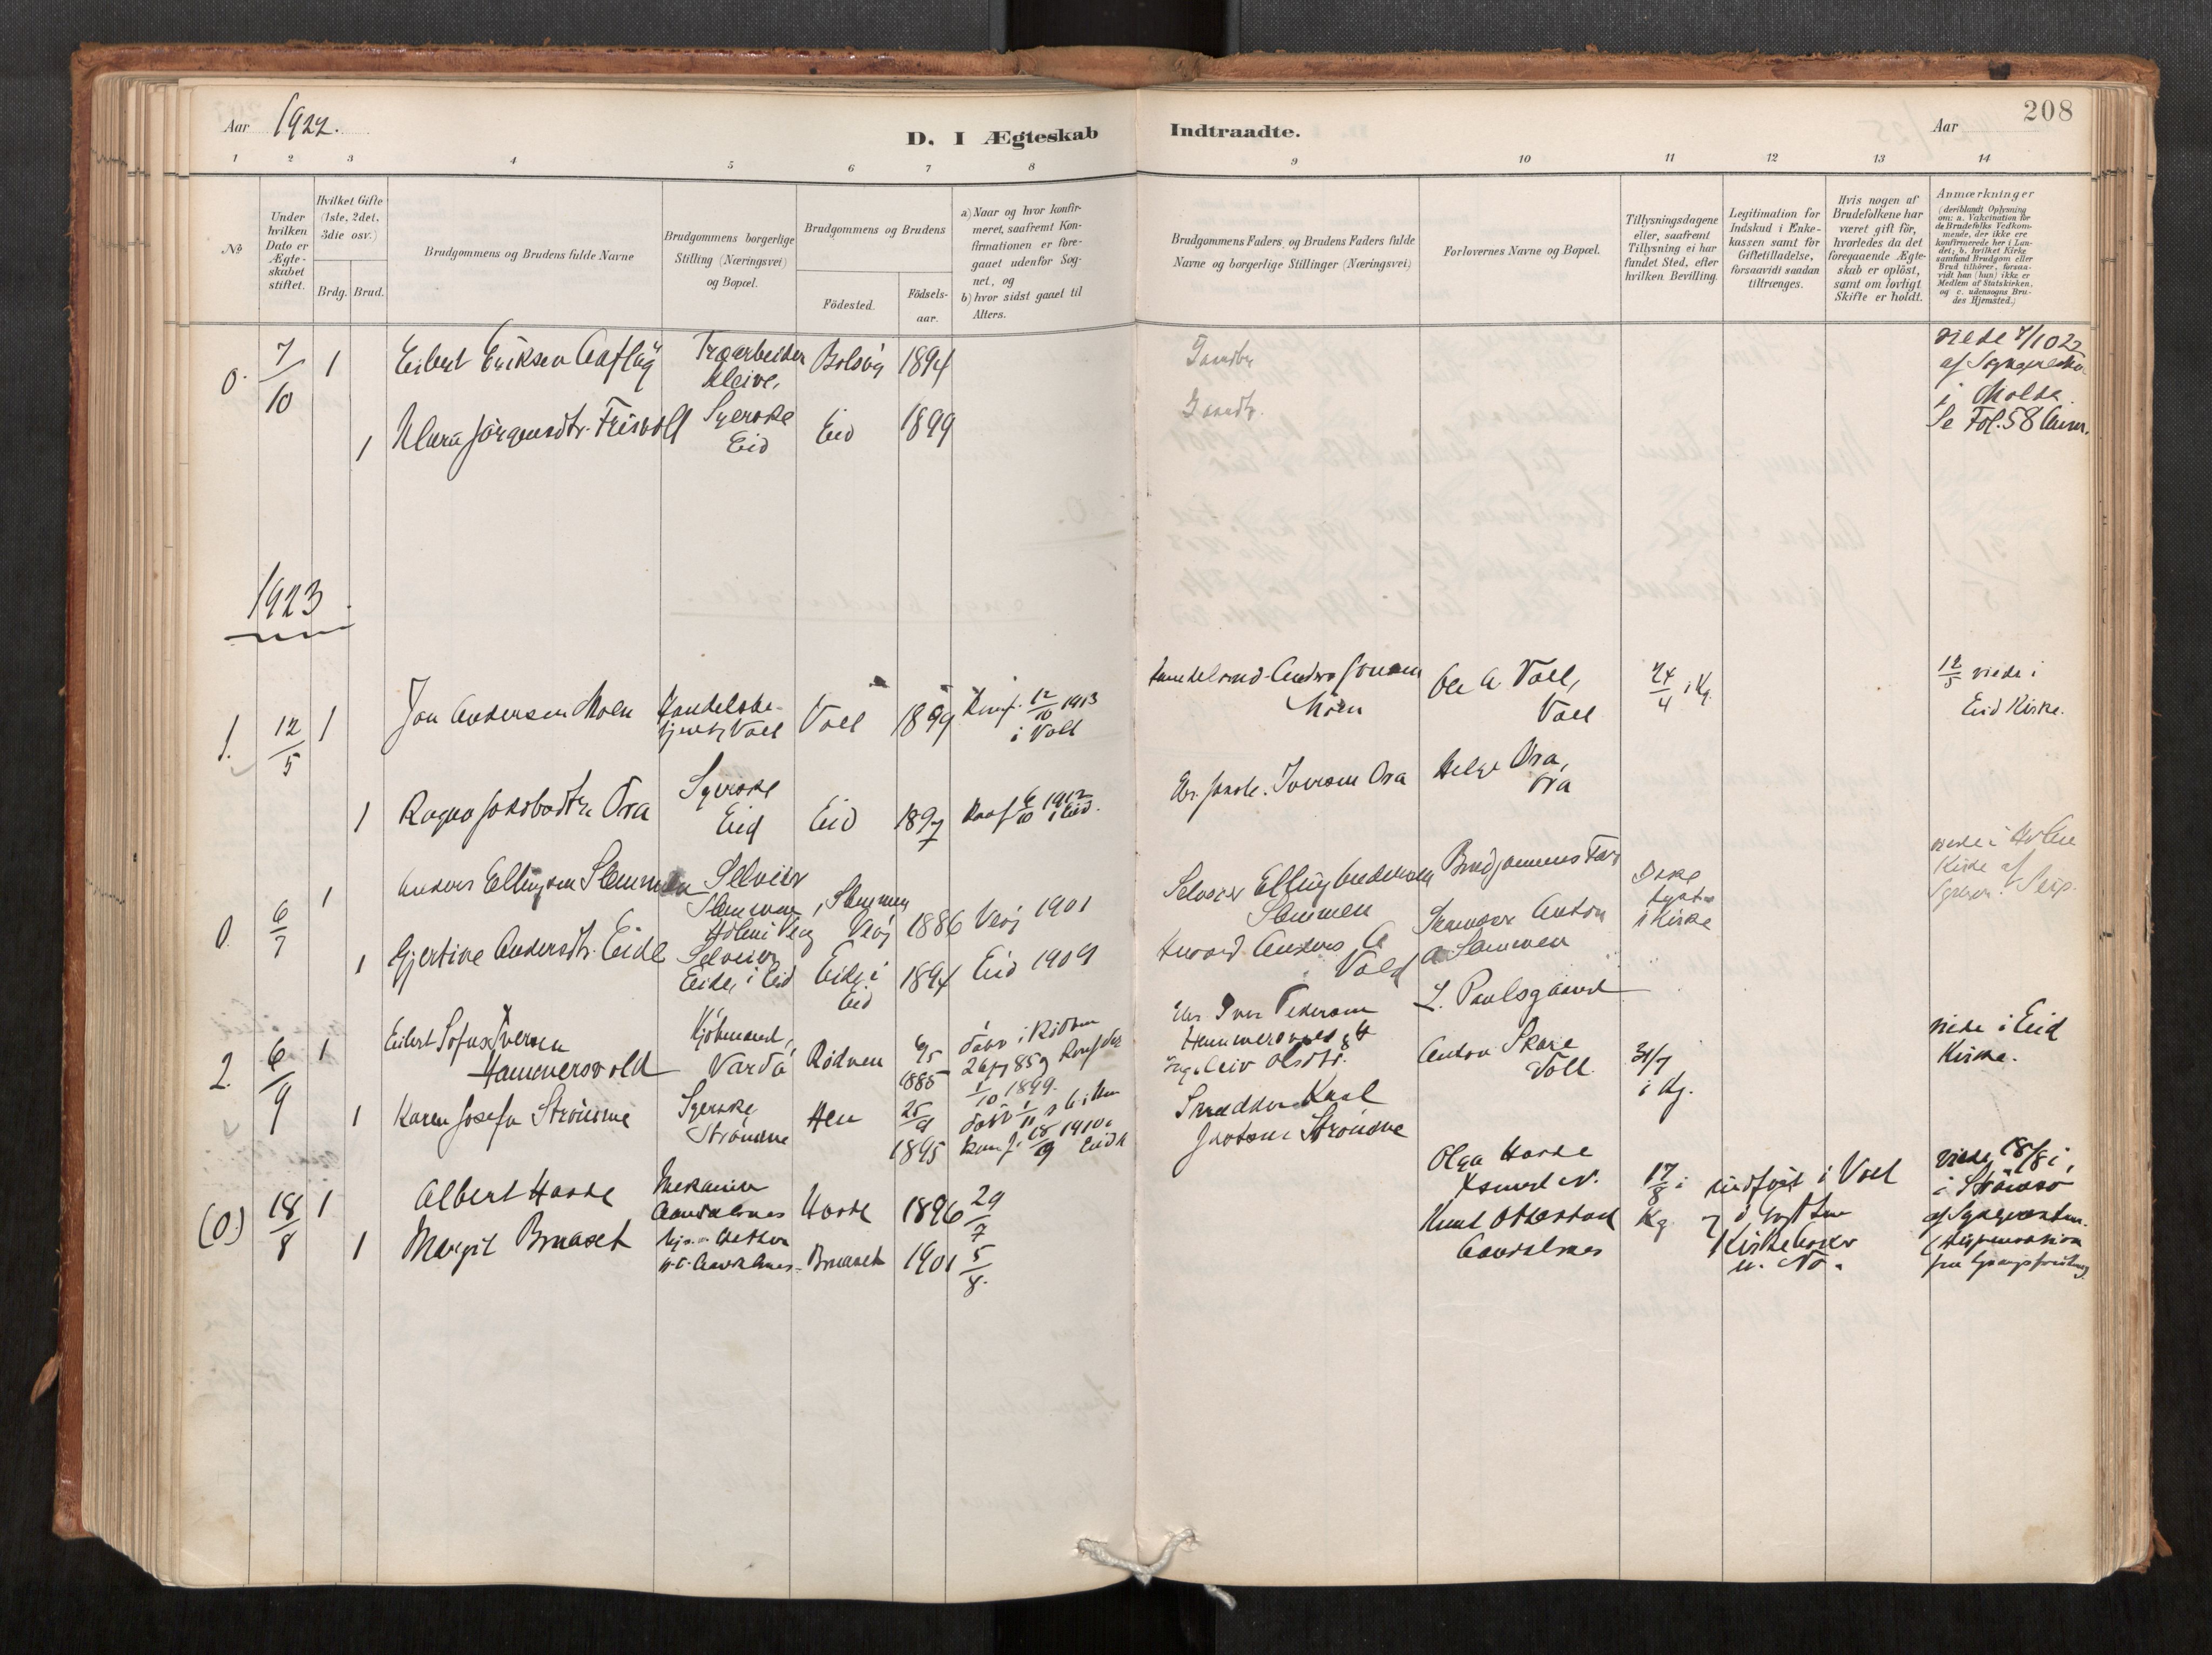 Aar 1922.
D. I Ægteskab
Indtraadte.
Aar
208
1 2 3 4 5 6 7 8 9 10 11 12 13 14
No
Under hvilken Dato er Ægteskabet stiftet.
Hvilket Gifte (1ste, 2det, 3die osv.)
Brdg. Brud.
Brudgommens og Brudens fulde Navne
Brudgommens borgerlige Stilling (Næringsvei) og Bopæl.
Brudgommens og Brudens
Födested.
Födsels-aar.
a) Naar og hvor konfir-
meret, saafremt Kon-
firmationen er fore-
gaaet udenfor Sog-
net, og
b) hvor sidst gaaet til
Alters.
Brudgommens Faders, og Brudens Faders fulde
Navne og borgerlige Stillinger (Næringsvei)
Forlovernes Navne og Bopæl.
Tillysningsdagene
eller, saafremt
Tillysning ei har
fundet Sted, efter
hvilken Bevilling.
Legitimation for
Indskud i Enke-
kassen samt for
Giftetilladelse,
forsaavidt saadan
tiltrænges.
Hvis nogen af
Brudefolkene har
været gift för,
hvorledes da det
foregaaende Ægte-
skab er oplöst,
samt om lovligt
Skifte er holdt.
Anmærkninger
(deriblandt Oplysning
om: a. Vakcination for
de Brudefolks Vedkom-
mende, der ikke ere
konfirmerede her i Lan-
det; b. hvilket Kirke
samfund Brudgom eller
Brud tilhörer, forsaa-
vidt han (hun) ikke er
Medlem af Statskirken,
og c. udensogns Bru-
des Hjemsted.)
0. 7/10 1 Eilert Eriksen Træarbeider Bolsöy 1894 viede 7/10 22
Kleive, af Sognepresten
i Molde.
1 Klara Jörgensdtr. Frisvoll Syerske Eid 1899 Se Fol. 58 Anm.
Eid
1923.
1. 12/5 1 Jon Andersen Moen Handelsbe-
tjent, Voll Voll 1899 Konf. 12/10 1913
i Voll
Handelsmd. Anders Jonsen
Moen
Ole A Voll,
Voll
24/4 i Kg.
12/5 viede i
Eid Kirke.
1 Ragna Jakobsdtr Ora Syerske
Eid Eid 1897 Konf 6/10 1912
i Eid.
Iversen Ora
Helge Ora,
Ora
0. 6/7 1 Anders Ellingsen Slemmen Selveier
Slemmen, Slemmen
Holm i Veøy Veøj 1886 Veøj 1901
Selveier Elling Andersen
Slemmen
Brudgommens Far
Ikke
lyst
i Kirke
viede i Holm
Kirke af
Sogneprest
1 Gjertine Andersdtr. Eide Selveier
Eide, i Eid Eide i
Eid 1894 Eid 1909
Anders A
Vold
Anton
A Slemmen
2. 6/9 1 Eilert Sofus Iversen
Hammersvold Kjöbmand,
Vardö Rödven 6/5
1885 döbt i Rödven
26/7 85 og Konf der
1/10 1899.
Iver Pedersen
Hammersvold &
Ingeleiv Olsdtr.
L. Paulsgaard
Anton Skare
Voll
31/7
i Kg.
viede i Eid
Kirke.
1 Karen Josefa Strömme Syerske
Strömme Hen 25/9
1895
konf. 18/9 1910 i Eid k
Skrædder Karl
Strömme
(0.) 18/8 1 Albert Harde Mekaniker
Aandalsnes Harde 1896 29/7
Olga Harde
17/8 i
Kg
indført i Voll
viede 18/8 i
i Strömsö
1 Margit Bruaset
Aandalsnes Bruaset 1901 5/8.
Knut Ottestad
Aandalsnes
Kirkebøker
u. No.
af Sognepresten
(Dispensation